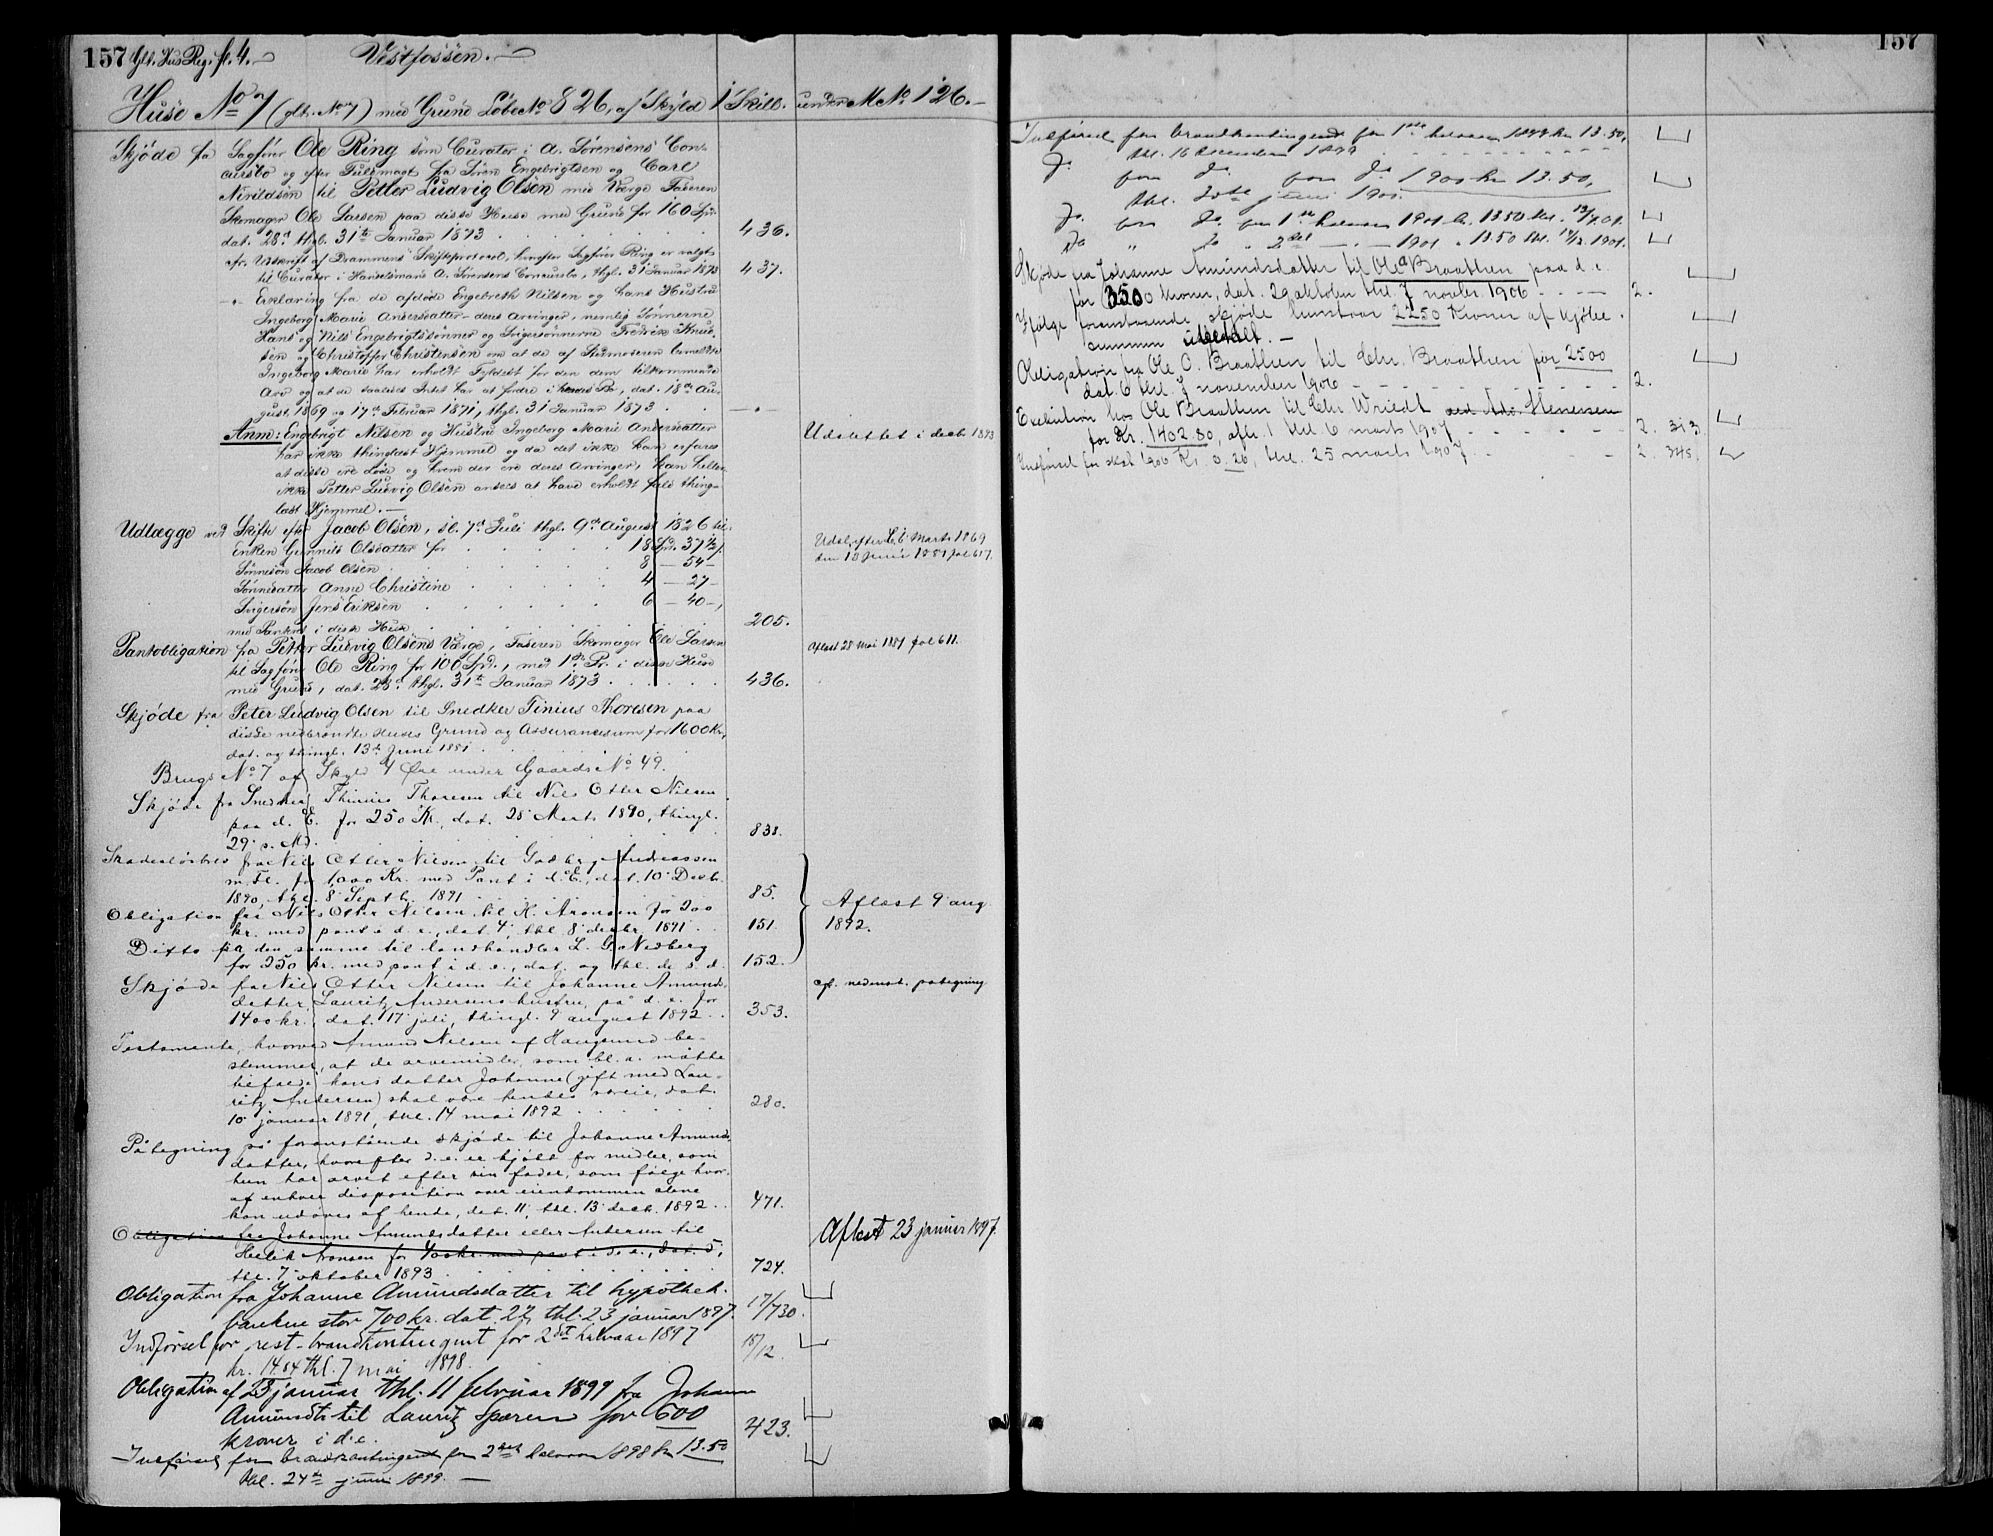 157 Glt. Hus Reg. fl. 4. — Vestfossen. —
Huse No 7 (glt. No 7) med Grund Løbe No 826, af Skyld 1 Skill. under M No 126. —
Skjøde fra Sagfører Ole Ring som Curator i A. Sørensens Con-
cursbo og efter Fuldmagt fra Søren Engebrigtsen og Carl
til Petter Ludvig Olsen med Værge Faderen
Skomager Ole Larsen paa disse Huse med Grund for 160 Spd.
dat. 28d thgl. 31te Januar 1873 . . . 436.
cfr. Udskrift af Drammens Skifteprotocol, hvorefter Sagfører Ring er valgt
til Curator i Handelsmand A. Sørensens Concursbo, thgl. 31 Januar 1873 437.
— " — Erklæring fra de afdøde Engebreth Nilsen og hans Hustru
Ingeborg Marie Andersdatters deres Arvinger, nemlig Sønnerne
Hans og Nils Engebrigtssønner og Svigersønnerne Fredrik Knud-
sen og Christoffer Christensen om at de af Stedmoderen bemeldte
Ingeborg Marie har erholdt Fyldest for den dem tilkommende
Arv og at de saaledes Intet har at fordre i hendes Bo, dat. 18de Au-
gust 1869 og 17de Februar 1871, thgl. 31 Januar 1873 . . — " —
Anm: Engebrigt Nilsen og Hustru Ingeborg Marie Andersdatter
har ikke thinglæst Hjemmel og da det ikke kan erfares
at disse ere døde og hvem der ere deres Arvinger, kan heller
ikke Petter Ludvig Olsen ansees at have erholdt fuld thing-
læst Hjemmel. —
Udslettet i decbr 1893
Udlægge ved Skifte efter Jacob Olsen, sl. 7de Juli thgl. 9de August 1826 til:
Enken Gunnild Olsdatter for . . . 18 Spd. 37 1/2 ,
Sønnesøn Jacob Olsen . . . 8 — 54 —
Sønnedatter Anne Christine . . . 4 — 27 —
Svigersøn Jens Eriksen . . . 6 — 40 —,
med Panteret i disse Huse . . . 205.
Udsl. efter L. 6 Marts 1869
den 13 Juni 1881 fol 617.
Pantobligation fra Petter Ludvig Olsens Værge, Faderen Skomager Ole Larsen
til Sagfører Ole Ring for 100 Spd., med 1ste Pr. i disse Huse
med Grund, dat. 28d thgl. 31te Januar 1873 . . . 436.
Aflæst 28 Mai 1881 fol 611.
Skjøde fra Peter Ludvig Olsen til Snedker Tinius Thoresen paa
disse nedbrændte Huses Grund og Assurancesum for 1600 Kr,
dat. og thingl. 13de Juni 1881 . . .
Brugs No 7 af Skyld 4 Øre under Gaards No 49.
Skjøde fra Snedker Thinius Thoresen til Nils Otter Nilsen
paa d. E. for 250 Kr., dat. 28 Marts 1890, thingl.
29 s. Md. . . . 838.
Skadesløsbrev fra Nils Otter Nilsen til Godberg Andreassen
m. Fl. for 1,000 Kr. med Pant i d. E., dat. 10 Decbr.
1890, thl. 8 Septb. 1891 . . . 85.
Obligation fra Nils Otter Nilsen til H. Aronsen for 200
kr. med pant i d. e., dat. 4, thl. 8 decbr. 1891 . . 151
Ditto fra den samme til landhandler L. G. Nedberg
for 250 kr. med pant i d. e., dat. og thl. de s. d. 152.
Aflæst 9 aug
1892.
Skjøde fra Nils Otter Nilsen til Johanne Amunds-
datter, Lauritz Andersens hustru, på d. e. for
1400 kr., dat. 17 juli, thingl. 9 august 1892 . . 353.
cfr. nedenst. påtegning
Testamente, hvorved Amund Nilsen af Haugsund be-
stemmer, at de arvemidler, som bl. a. måtte
tilfalde hans datter Johanne (gift med Lau-
ritz Andersen) skal være hendes særeie, dat.
10 januar 1891, thl. 14 mai 1892 . . . 280.
Påtegning på foranstående skjøde til Johanne Amunds-
datter, hvorefter d. e. er kjøbt for midler, som
hun har arvet efter sin fader, som følge hvor-
af enhver disposition over eiendommen alene
kan udøves af hende, dat. 11, thl. 13 decb. 1892 . . 471.
Obligation fra Johanne Amundsdatter eller Andersen til
Hedik Aronsen for 400 kr. med pant i d. e., dat. 5,
thl. 7 oktober 1893 . . . 724.
Aflæst 23 januar 1897.
Obligation fra Johanne Amundsdatter til hypothek-
banken stor 700 kr. dat 22, thl. 23 januar 1897. 17/730.
Indførsel for rest-brandkontingent for 2det halvaar 1897
kr. 14.84 thl. 7 mai 1898. 18/12.
Obligation af 28 januar thl. 11 februar 1899 fra Johanne
Amundsdtr til Lauritz Sparen for 600
kroner i d. e. 423.
Indførsel for brandkontingent for 2det halvaar 1898 kr 13.50
thl. 24de juni 1899. —
157
Indførsel for brandkontingent for 1ste halvaar 1899 kr 13.50,
thl. 16 december 1899
Do for do for do 1900 kr 13.50,
thl. juni 1901.
Do for do for 1ste halvaar 1901 kr. 13.50 thl.
Do " do " 2det — " — 1901 " 13.50 thl. 1901.
Skjøde fra Johanne Amundsdatter til Ole Braathen paa d. e.
for 3500 kroner, dat. 29 oktober thl. 7 novbr. 1906 . . . 2.
Ifølge foranstaaende skjøde henstaar 2250 Kroner af kjøbe-
summen ubetalt. —
Obligation fra Ole O. Braathen til Chr. Braathen for 2500
dat. 6 thl. 7 november 1906 . . . 2.
Exekution hos Ole Braathen til Chr Wriedt ved Adv. Stenersen
for Kr. 1402.80, afh. 1 thl 6 marts 1907 . . . 2. 313.
Indførsel for skat 1906 Kr. 0.26, thl. 25 marts 1907 . . . 2. 345.